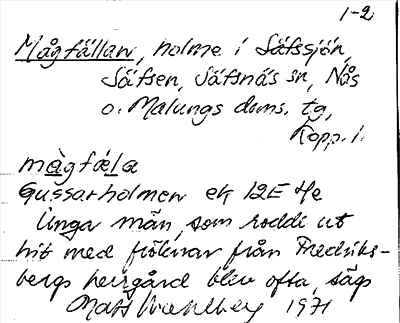 1-2
Mågfällan, holme i Säfssjön,
Säfsen, Säfsnäs sn, Nås
o. Malungs doms. tg,
Kopp. l.
mågfäla
Gussarholmen ek 12E 4e
Unga män, som rodde ut
hit med fröknar från Fredriks-
bergs herrgård blev ofta, sägs
Mats Wahlberg 1971